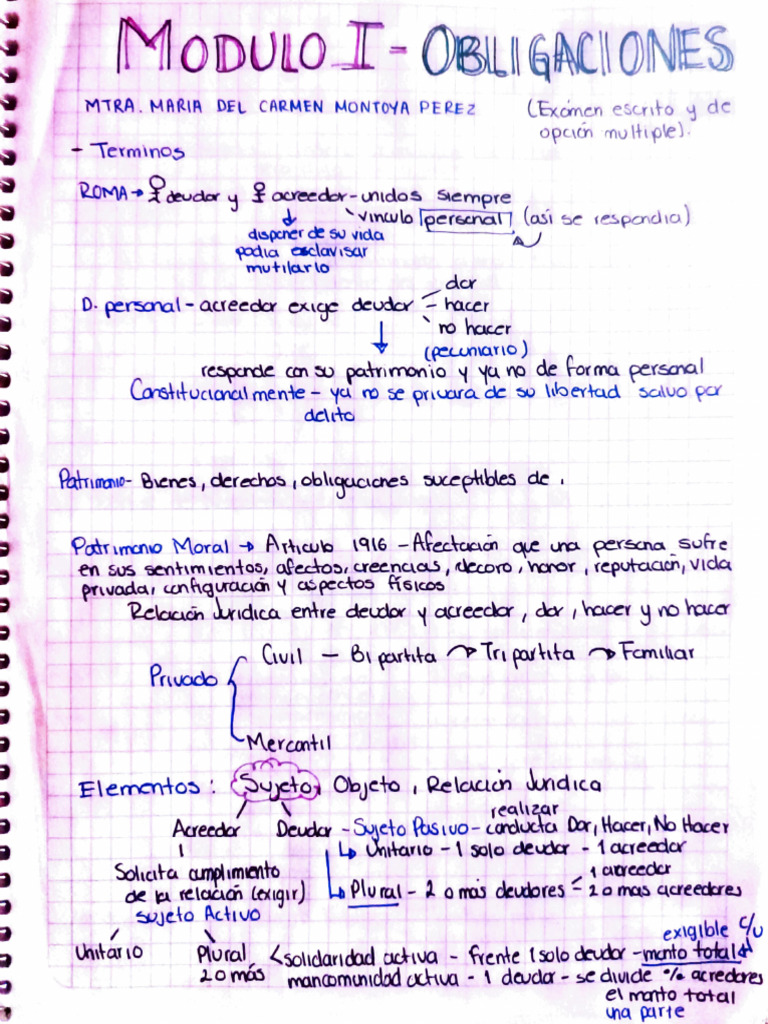 MODULO I - OBLIGACIONES
MTRA. MARIA DEL CARMEN MONTOYA PEREZ (Exámen escrito y de
opción multiple).
- Terminos
ROMA → deudor y acreedor - unidos siempre
vinculo personal (así se respondia)
disponer de su vida
podia esclavisar
mutilarlo
D. personal - acreedor exige deudor - dar
- hacer
no hacer
(pecuniario)
responde con su patrimonio y ya no de forma personal
Constitucionalmente - ya no se privara de su libertad salvo por
delito
Patrimonio - Bienes, derechos, obligaciones suceptibles de .
Patrimonio Moral → Articulo 1916 - Afectación que una persona sufre
en sus sentimientos, afectos, creencias, decoro, honor, reputación, vida
privada, configuración y aspectos físicos
Relación Juridica entre deudor y acreedor, dar, hacer y no hacer
Civil - Bipartita → Tripartita → Familiar
Privado
Mercantil
Elementos: Sujeto, Objeto, Relación Juridica
realizar
Acreedor Deudor - Sujeto Pasivo - conducta Dar, Hacer, No Hacer
Unitario - 1 solo deudor - 1 acreedor
Solicita cumplimiento
de la relación (exigir)
sujeto Activo
1 acreedor
Plural - 2 o más deudores - 2 o mas acreedores
exigible c/u
Unitário Plural < solidaridad activa - frente 1 solo deudor - monto total
2 o más mancomunidad activa - 1 deudor - se divide % acredores
el monto total
una parte